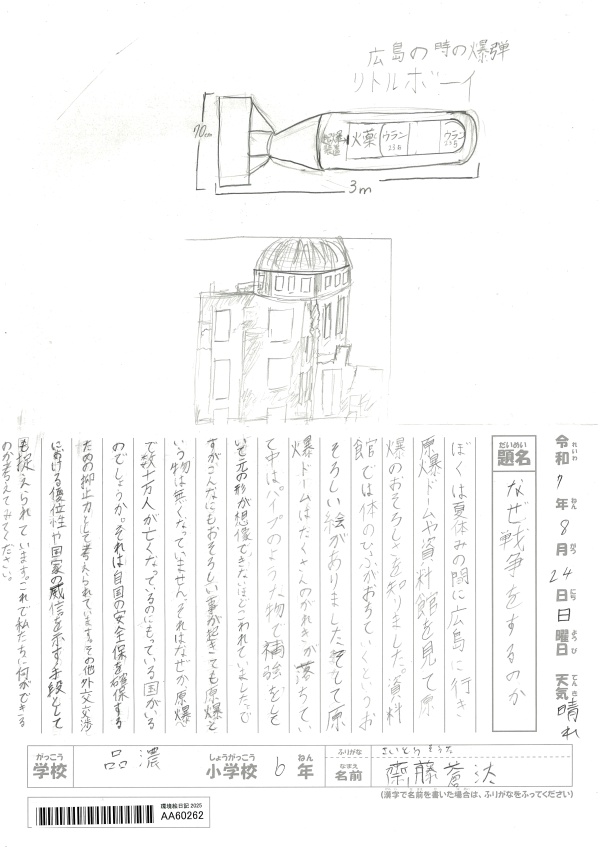 広島の時の爆弾
リトルボーイ
70cm
火薬
ウラン
235
ウラン
235
3m
令和7年8月24日日曜日 天気 晴れ
れいわ ねん がつ にち ようび てんき
だいめい
題名 なぜ戦争をするのか
ぼくは夏休みの間に広島に行き
原爆ドームや資料館を見て原
爆のおそろしさを知りました。資料
館では体のひふがおちていくというお
そろしい絵がありました。そして原
爆ドームはたくさんのがれきが落ちてい
て中はパイプのような物で補強をして
いて元の形が想像できないほどこわれていました。で
すがこんなにもおそろしい事が起きても原爆と
いう物は無くなっていません。それはなぜか原爆
で数十万人が亡くなっているのにもっている国がいる
のでしょうか。それは自国の安全保を確保する
ための抑止力として考えられています。その他外交交渉
における優位性や国家の威信を示す手段として
も捉えられています。これで私たちに何ができる
のか考えてみてください。
がっこう
学校 品濃
しょうがっこう ねん
小学校 6年
ふりがな さいとう そうた
なまえ
名前 齋藤蒼汰
(漢字で名前を書いた場合は、ふりがなをふってください)
環境絵日記 2025
AA60262